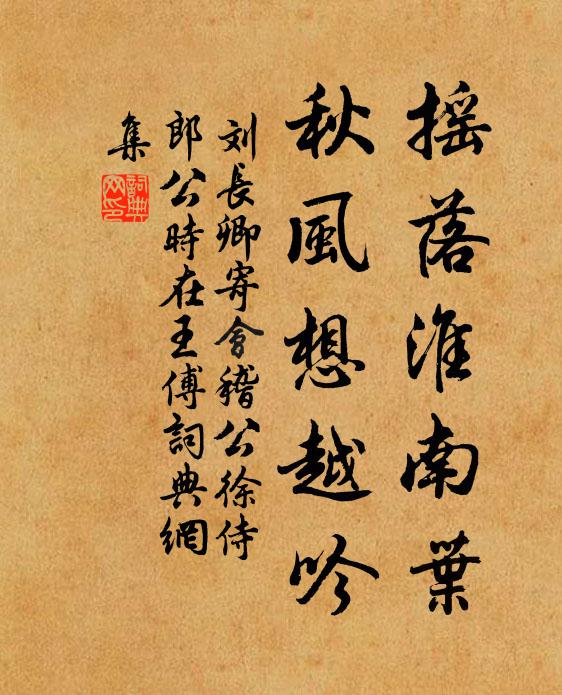 摇落淮南葉
秋風想越吟
刘長卿寄會稽公徐侍
郎公時在王傅詞典網
集
詞典
网印